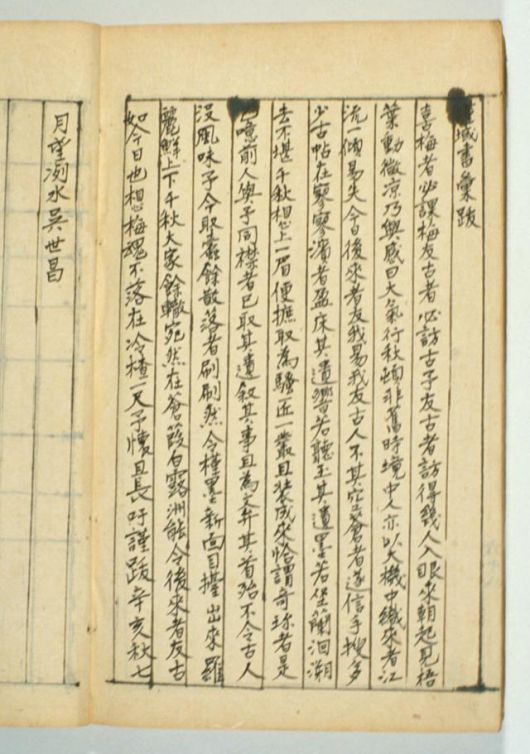 域書彙跋
喜梅者必課梅友古者必訪古予友古者訪得幾人入眼來朝起見梧
葉動微凉乃興感曰大氣行秋頓非舊時境中人亦以大機中織來者江
流一傾易失今日後來者友我易我友古人不其空蒼者遂信手搜多
少古帖在寥寥濱者盈床其遺響若聽玉其遺墨若坐蘭洄溯
去不堪千秋想上一眉便摭取為騷一匹一叢且裝成來恰謂奇珍者是
噫前人與予同襟者已取其遺叙其事且為文弁其首殆不令古人
沒風味予今取囊餘散落者刷刷然今積墨新面目擡出來羅
麗鮮上下千秋大家餘轍宛然在蒼葭白露洲能令後來者友古
如今日也想梅魂不落在冷楂一尺予懷且長吁謹跋辛亥秋七
月望洌水吳世昌